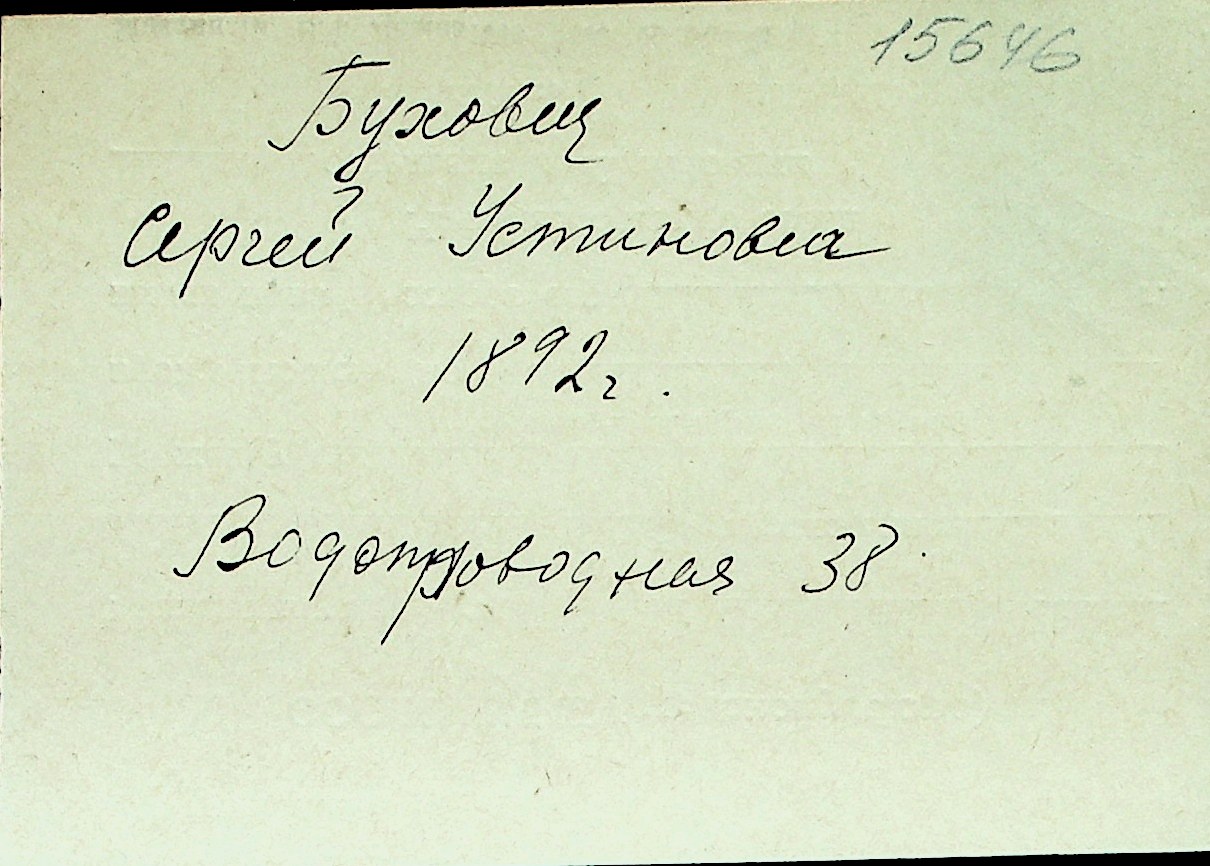 15646
Буховец
Сергей Устинович
1892г.
Водопроводная 38